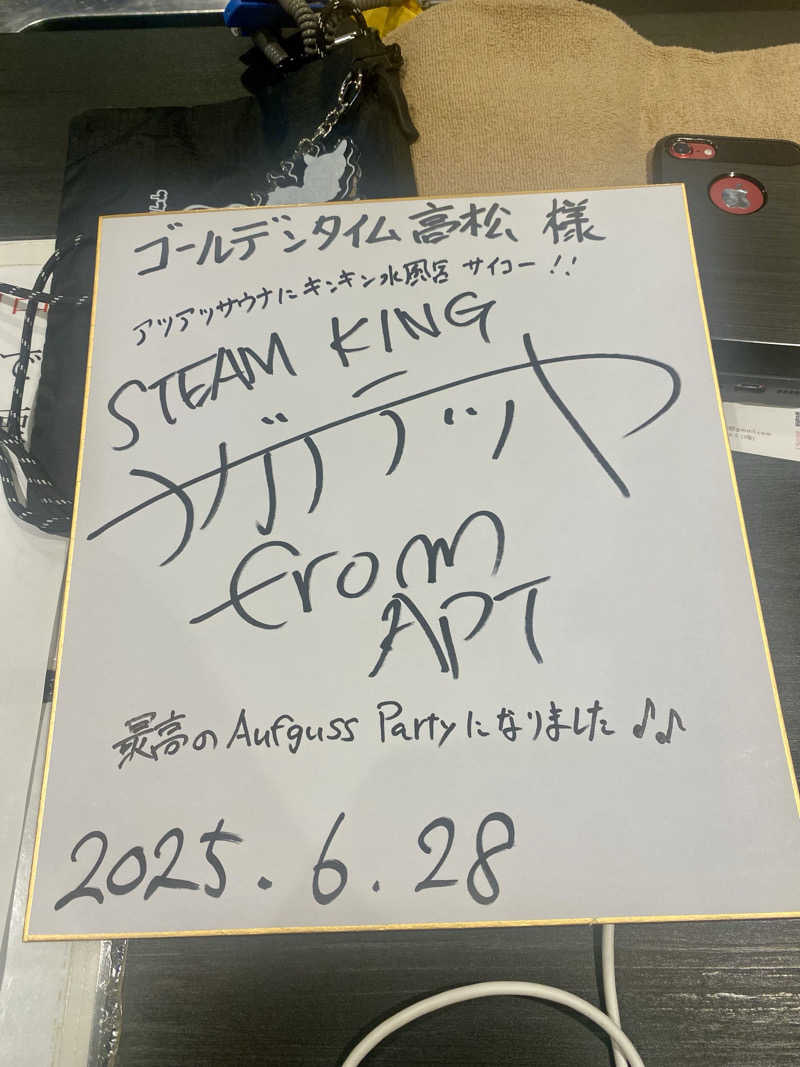 ゴールデンタイム高松 様
アツアツサウナにキンキン水風呂 サイコー!!
STEAM KING
from
APT
最高の Aufguss Partyになりました ♪♪
2025.6.28